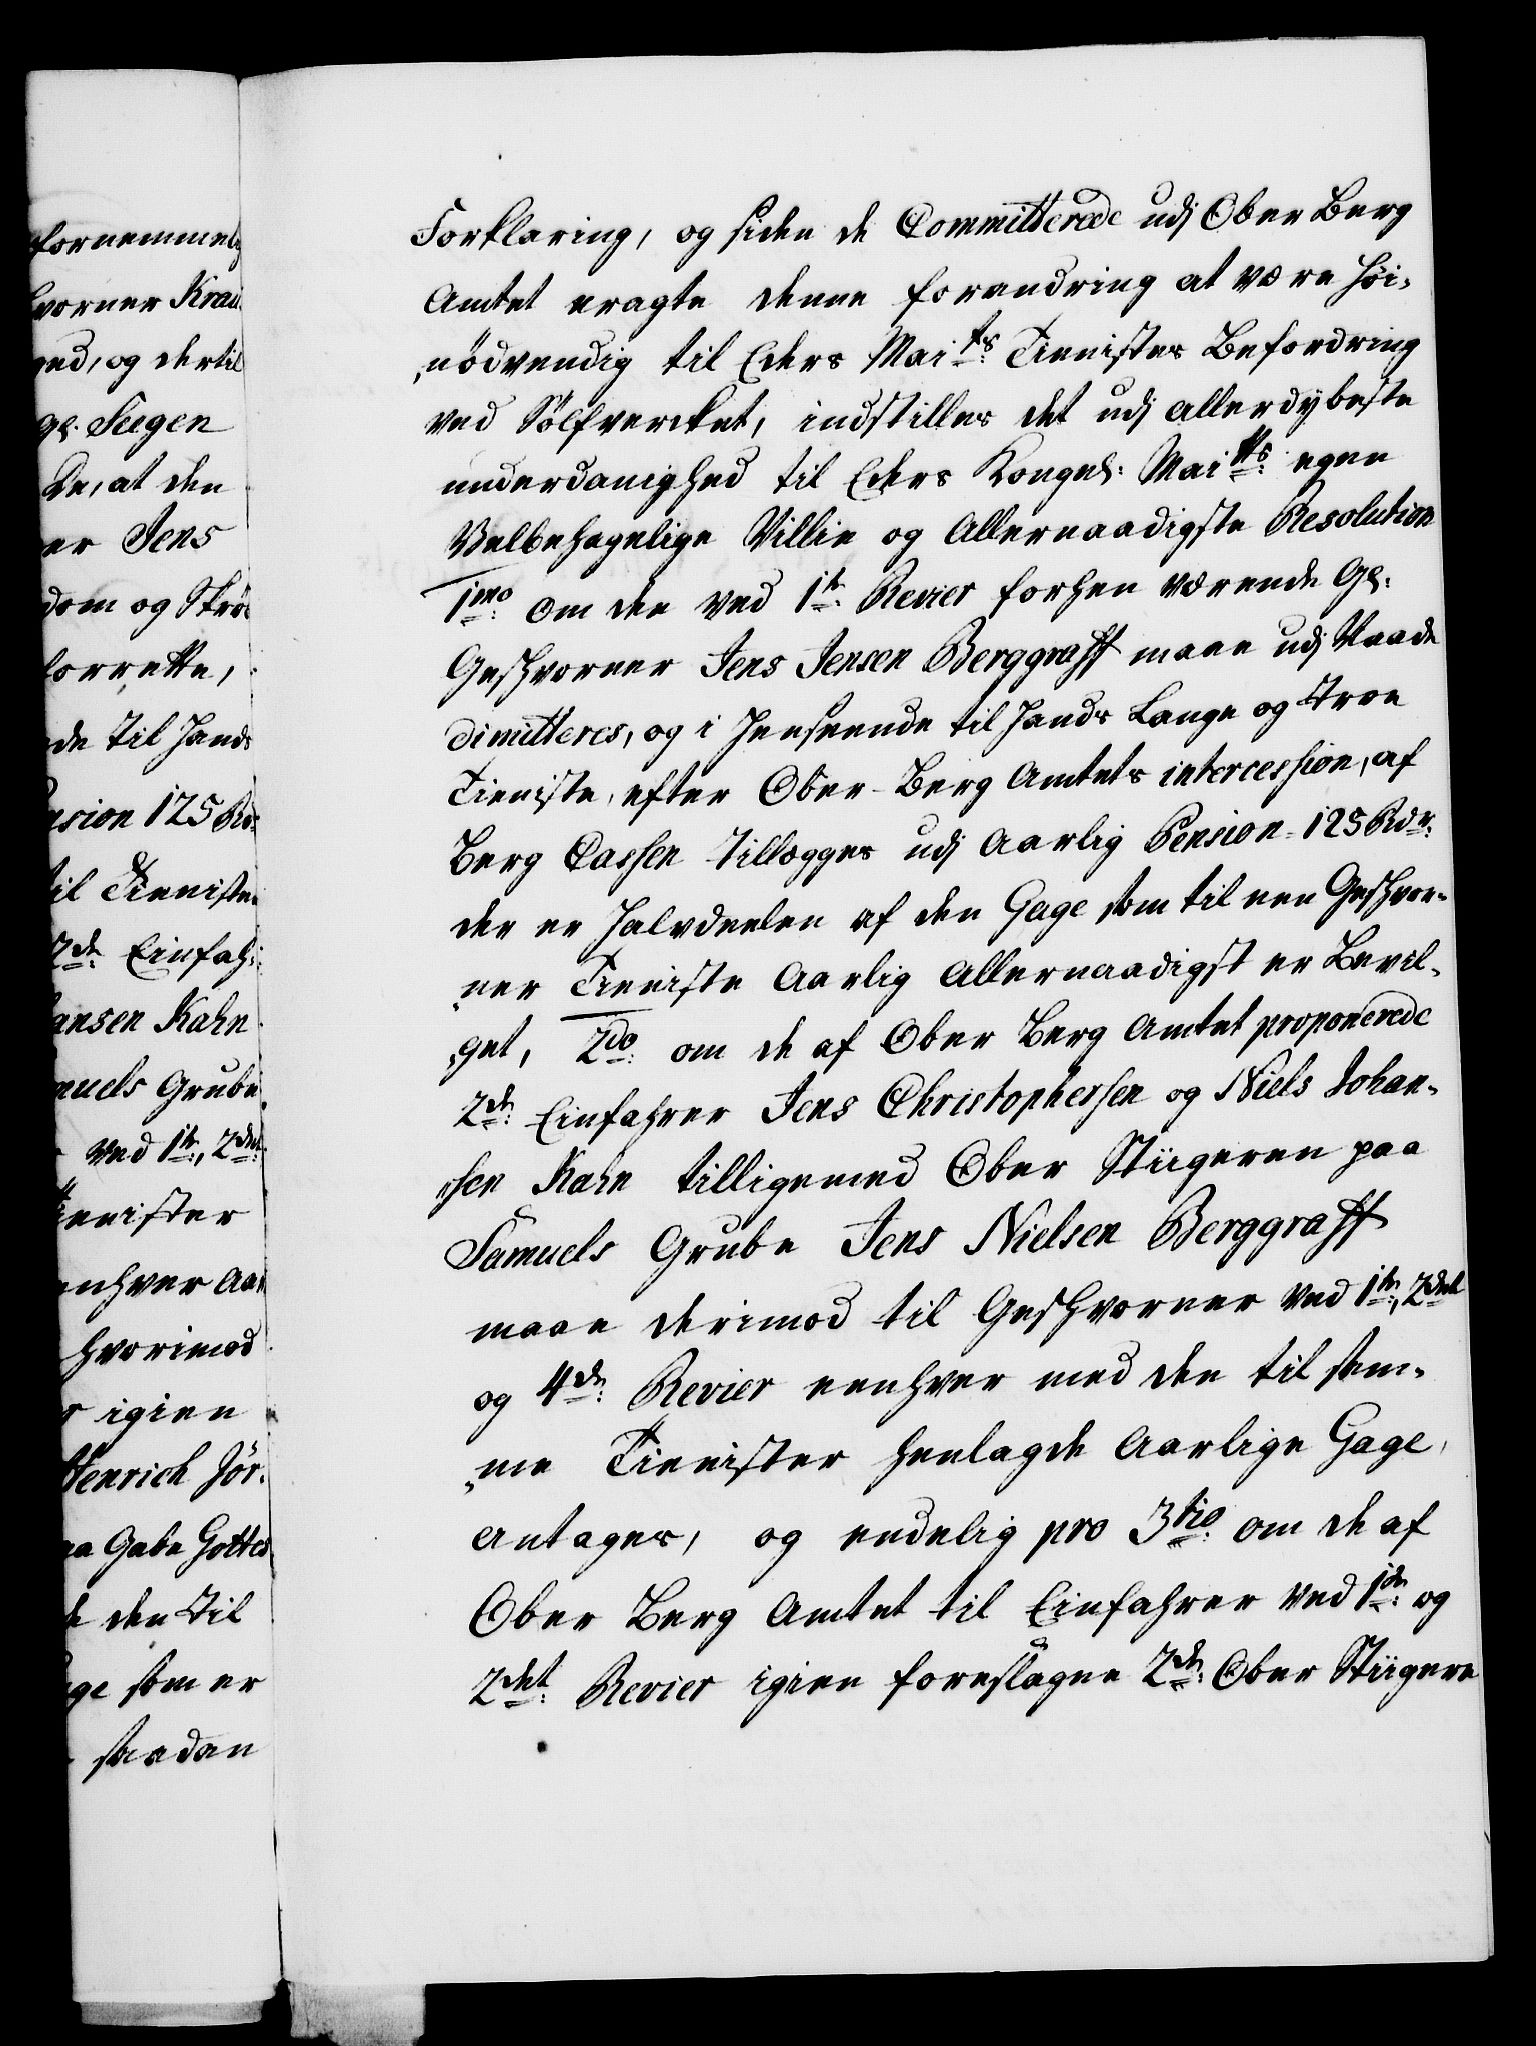 fornemmelig
hvorner Krau
ged, og dertil
gl. Seegen
de, at den
er Jens
dom og Skrö
forrette,
de til hands
nsion 125 Rdr
til Tieniste
2de Einfah:
ansen Kahn
muels Grube
ved 1te, 2det
Tienister
enhver Aar
hvorimod
r igien
Henrich Jör-
aa Gabe Gottes
de den til
age som er
saadan
Forklaring, og siden de Committerede udj Ober Berg
Amtet eragte denne forandring at være höi-
nödvendig til Eders Maits Tienistes Befordring
ved Sölfverket, indstilles det udj allerdybeste
underdanighed til Eders Kongel: Maitts egen
Velbehagelige Villie og Allernaadigste Resolution
1mo om den ved 1te Revier forhen værende Gl.
Geshvorner Jens Jensen Berggraff maae udj Naade
dimitteres, og i henseende til hands Lange og troe
Tieniste, efter Ober-Berg Amtets intercession, af
Berg Cassen tillegges udj Aarlig Pension 125 Rdr.
der er halvdeelen af den Gage som til een Geshvor-
ner Tieniste Aarlig Allernaadigst er Bevil-
get, 2do om de af Ober Berg Amtet proponerede
2de Einfahrer Jens Christophersen og Niels Johan-
sen Kahn tilligemed Ober Stiigeren paa
Samuels Grube Jens Nielsen Berggraff
maae derimod til Geshvorner ved 1te, 2det
og 4de Revier eenhver med den til sam-
me Tienister henlagde Aarlige Gage,
antages, og endelig pro 3tio om de af
Ober Berg Amtet til Einfahrer ved 1de og
2det Revier igien foreslagne 2de Ober Stiigere